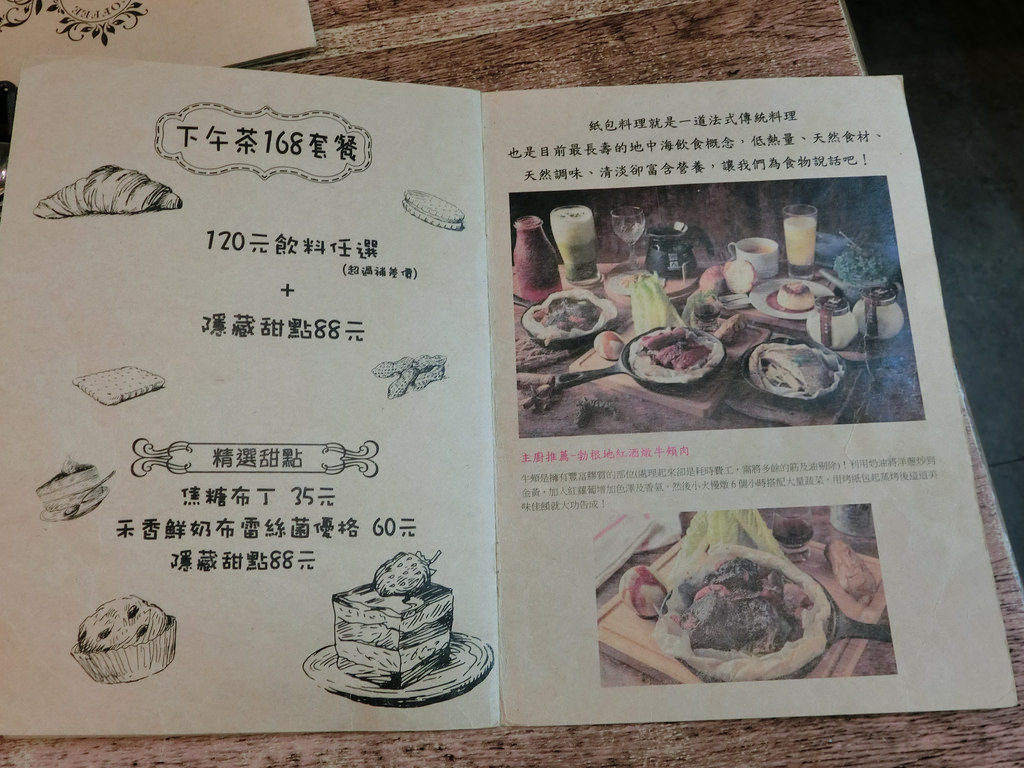 下午茶168套餐
120元飲料任選
(超過補差價)
+
隱藏甜點88元
精選甜點
焦糖布丁 35元
禾香鮮奶布雷絲菌優格 60元
隱藏甜點88元
紙包料理就是一道法式傳統料理
也是目前最長壽的地中海飲食概念，低熱量、天然食材、
天然調味、清淡卻富含營養，讓我們為食物說話吧！
主廚推薦-勃根地紅酒燉牛頰肉
牛頰是擁有豐富膠質的部位(處理起來卻是耗時費工，需將多餘的筋及油剔除)！利用奶油將洋蔥炒到
金黃，加入紅蘿蔔增加色澤及香氣，然後小火慢燉6個小時搭配大量蔬菜，用烤紙包起蒸烤後這道美
味佳餚就大功告成！